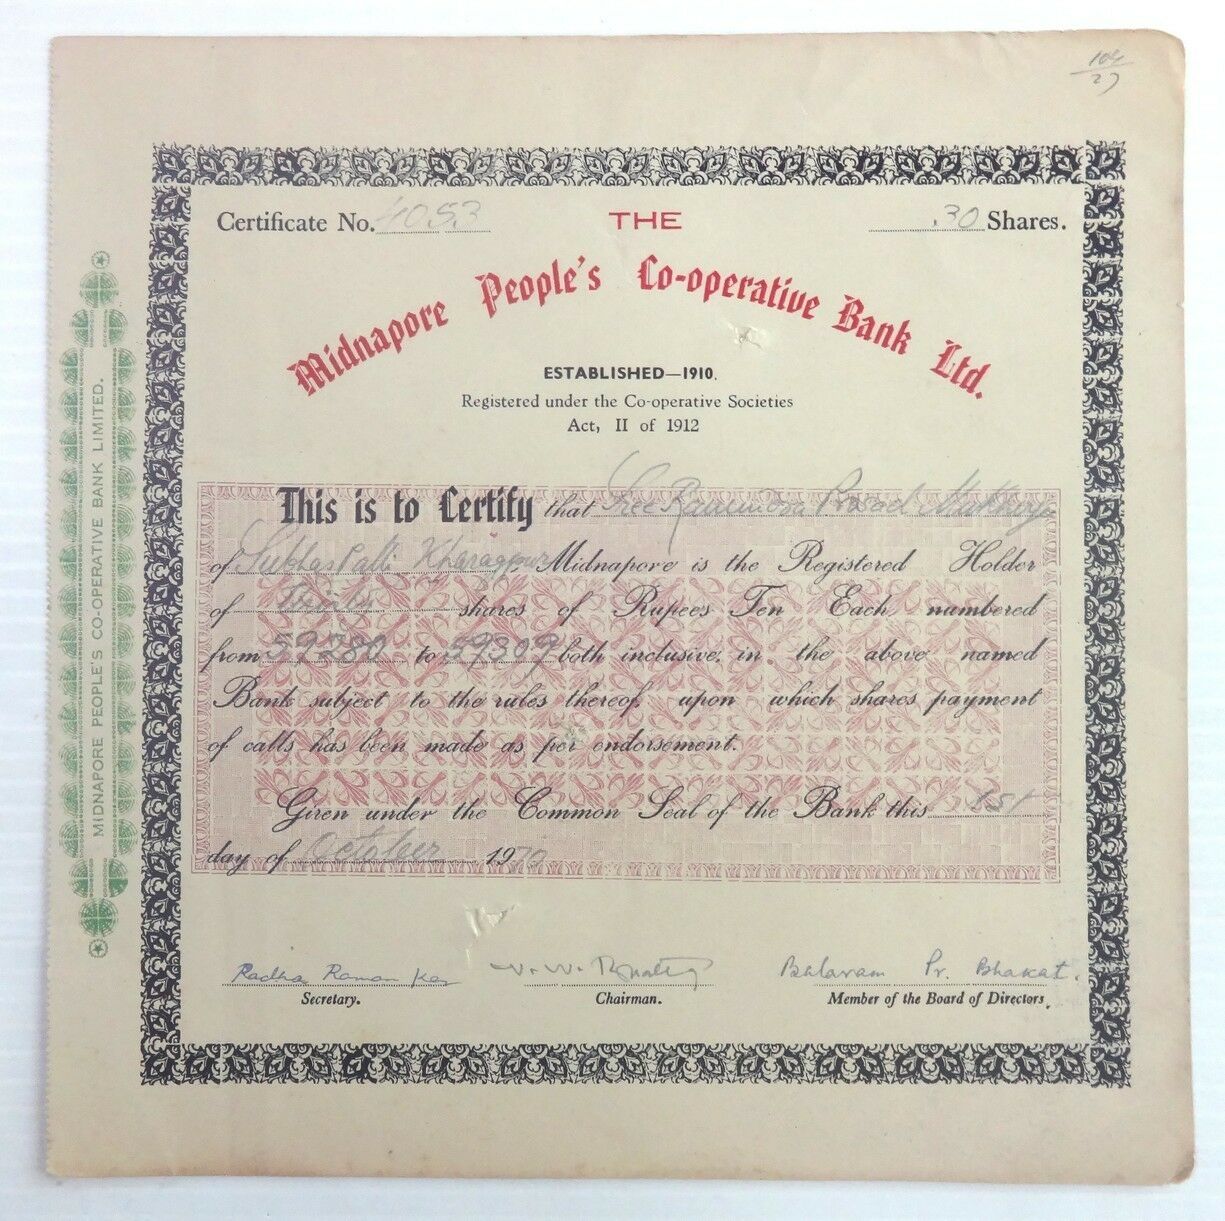 104
27
Certificate No. 4053 THE 30 Shares.
Midnapore People's Co-operative Bank Ltd.
ESTABLISHED—1910.
Registered under the Co-operative Societies
Act, II of 1912
This is to Certify that Sree Prosad
of Subhas Palli Kharagpur Midnapore is the Registered Holder
of Thirty shares of Rupees Ten Each numbered
from 59280 to 59309 both inclusive, in the above named
Bank subject to the rules thereof, upon which shares payment
of calls has been made as per endorsement.
Given under the Common Seal of the Bank this 1st
day of October 1970
Radha Raman Kar Balaram Pr. Bhakat.
Secretary. Chairman. Member of the Board of Directors.
MIDNAPORE PEOPLE'S CO-OPERATIVE BANK LIMITED.